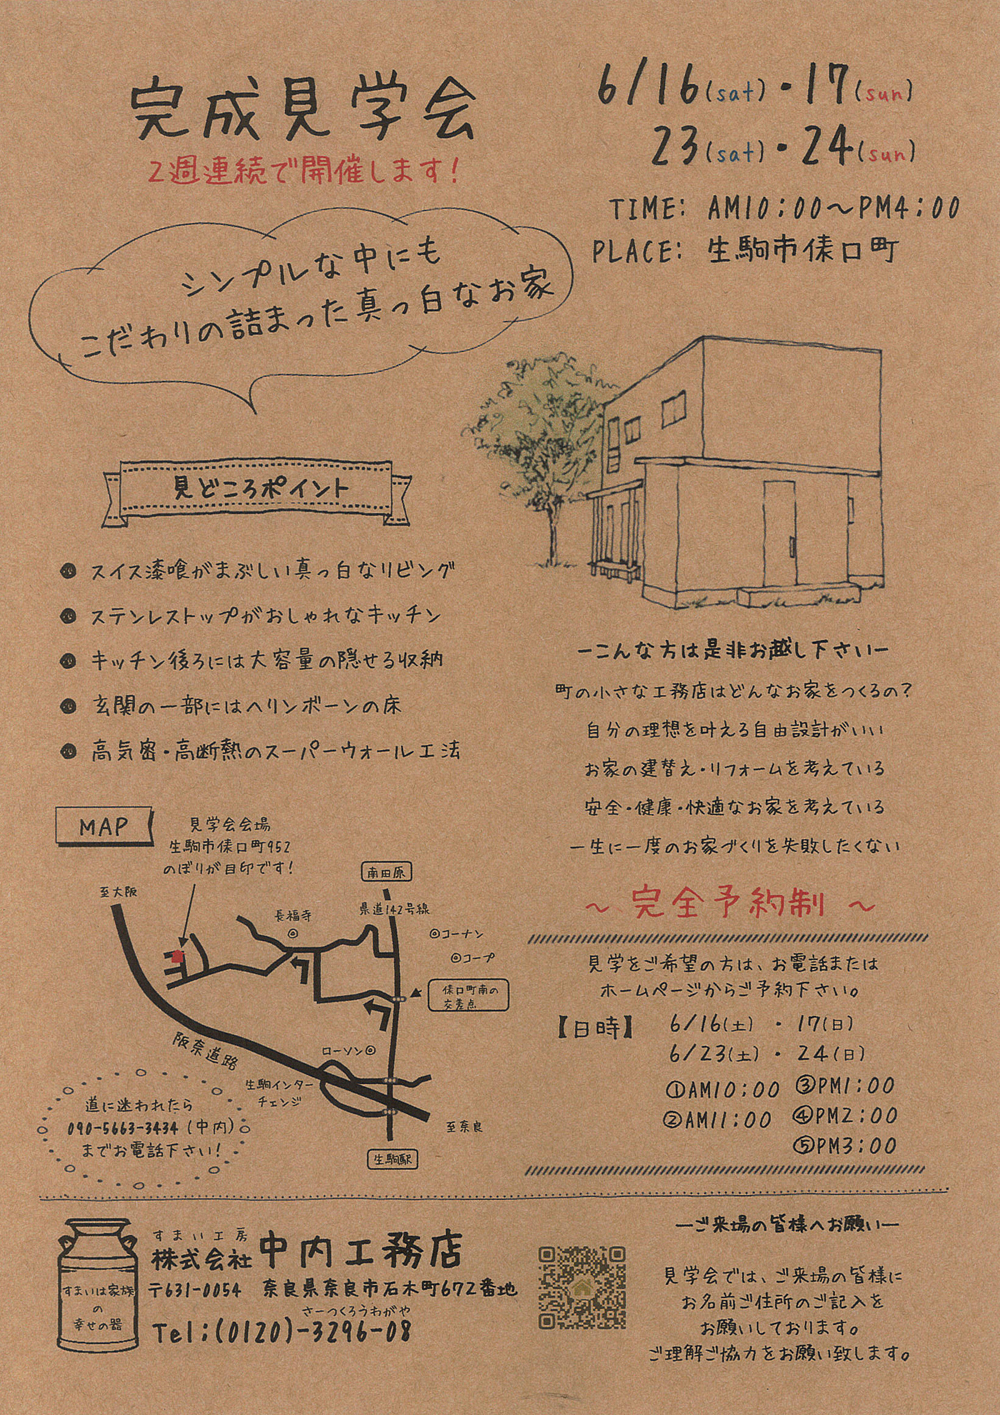 完成見学会
2週連続で開催します!
6/16(sat)・17(sun)
23(sat)・24(sun)
TIME: AM10:00〜PM4:00
PLACE: 生駒市俵口町
シンプルな中にも
こだわりの詰まった真っ白なお家
見どころポイント
スイス漆喰がまぶしい真っ白なリビング
ステンレストップがおしゃれなキッチン
キッチン後ろには大容量の隠せる収納
玄関の一部にはヘリンボーンの床
高気密・高断熱のスーパーウォール工法
ーこんな方は是非お越し下さいー
町の小さな工務店はどんなお家をつくるの?
自分の理想を叶える自由設計がいい
お家の建替え・リフォームを考えている
安全・健康・快適なお家を考えている
一生に一度のお家づくりを失敗したくない
〜 完全予約制 〜
見学をご希望の方は、お電話または
ホームページからご予約下さい。
【日時】 6/16(土) ・ 17(日)
6/23(土) ・ 24(日)
①AM10:00 ③PM1:00
②AM11:00 ④PM2:00
⑤PM3:00
MAP
見学会会場
生駒市俵口町952
のぼりが目印です!
至大阪
南田原
県道142号線
長福寺
コーナン
コープ
俵口町南の
交差点
阪奈道路
ローソン
生駒インター
チェンジ
至奈良
生駒駅
道に迷われたら
090-5663-3434 (中内)
までお電話下さい!
すまいは家族
の
幸せの器
すまい工房
株式会社中内工務店
〒631-0054 奈良県奈良市石木町672番地
さーつくろうわがや
Tel:(0120)-3296-08
ーご来場の皆様へお願いー
見学会では、ご来場の皆様に
お名前ご住所のご記入を
お願いしております。
ご理解ご協力をお願い致します。